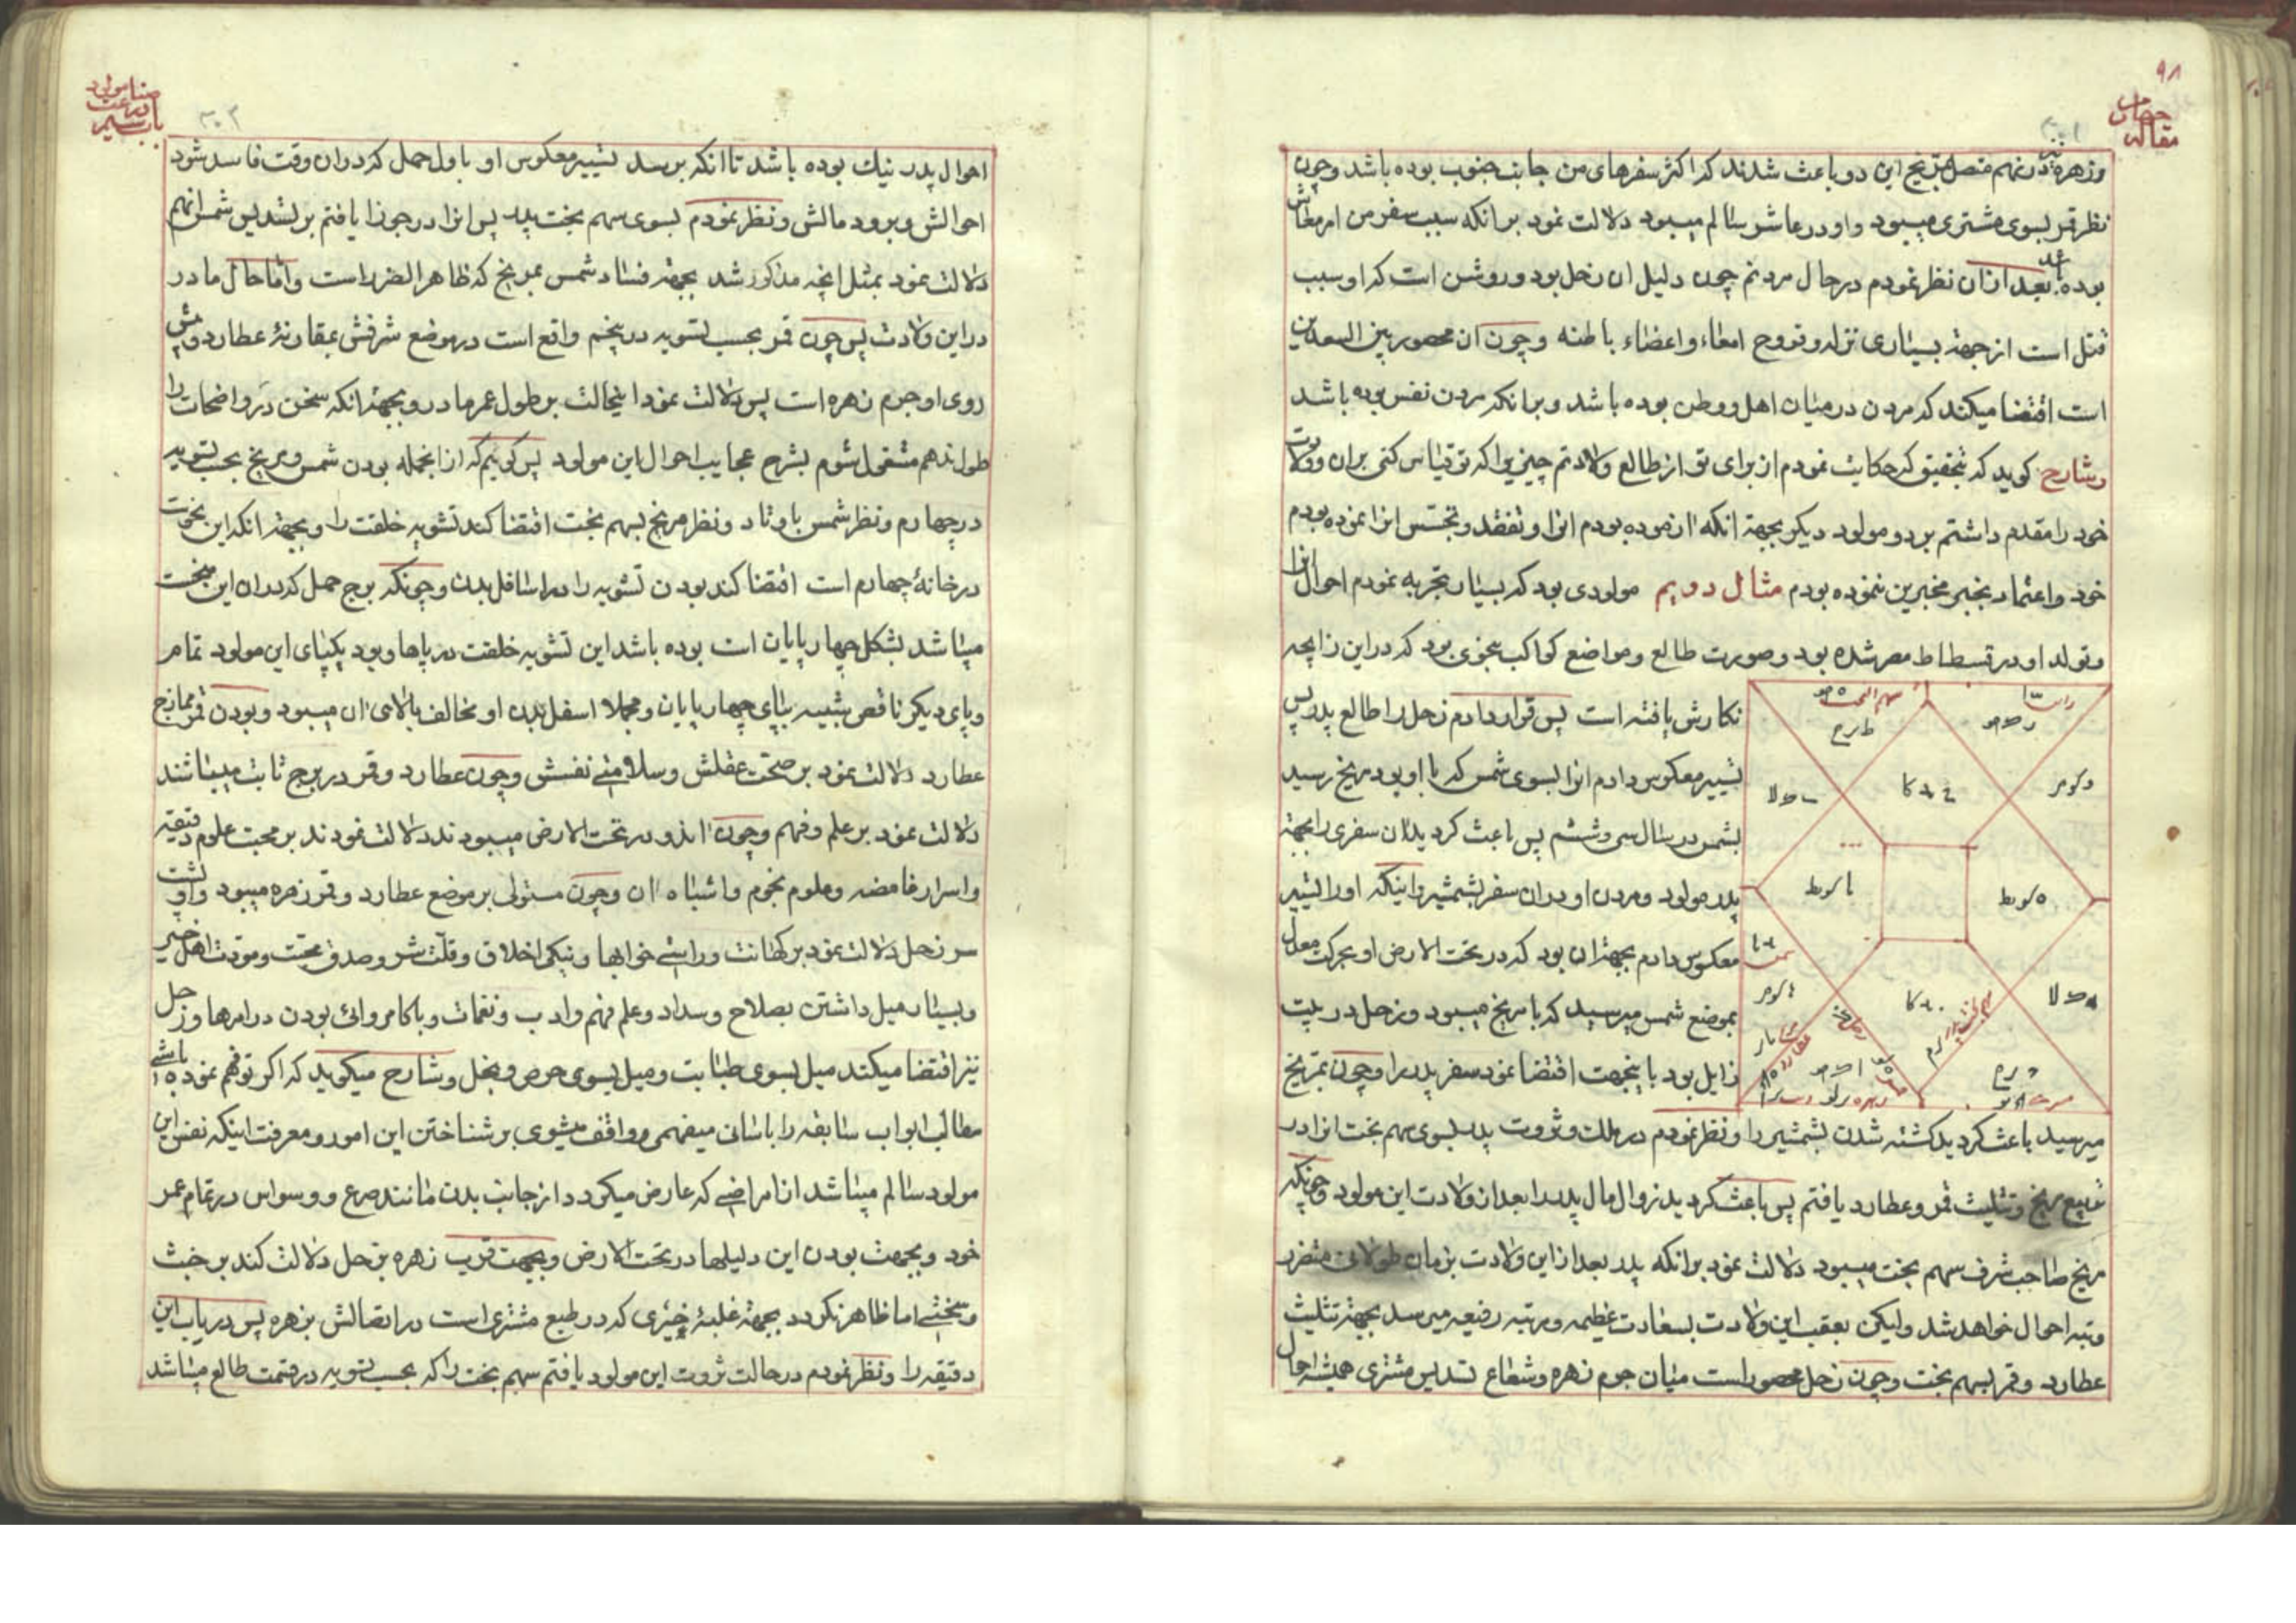 ۹۸
مقاله چهارم
وزهره در نهم متصل بمریخ این دو باعث شدند که اکثر سفرهای من جانب جنوب بوده باشد وچون
نظر قمر بسوی مشتری میبود واو در عاشر سالم میبود دلالت نمود برانکه سبب سفر من امر معاش
بوده بعد ازان نظر نمودم در حال مردنم چون دلیل ان زحل بود وروشن است که او سبب
قتل است از جهة بسیاری نزله وقروح امعاء واعضاء باطنه وچون ان محصور بین السعدین
است اقتضا میکند که مردن در میان اهل ووطن بوده باشد وبرانکه مردن نفس بوده باشد
وشارح کوید که بتحقیق که حکایت نمودم از برای تو از طالع ولادتم چیزیرا که تو قیاس کنی بران وولادت
خود را مقدم داشتم بر دو مولود دیکر بجهة انکه ازموده بودم انرا وتفقد وتجسس انرا نموده بودم
خود واعتماد بخبر مخبرین ننموده بودم مثال دویم مولودی بود که بسیار تجربه نمودم احوال انرا
وتولد او در قسطاط مصر شده بود وصورت طالع ومواضع کواکب بنحوی بود که در این زایجه
نکارش یافته است پس قرار دادم زحل را طالع پدر پس
تسییر معکوس دادم انرا بسوی شمس که با او بود مریخ رسید
بشمس در سال سی وششم پس باعث کردید ان سفری را بجهة
پدر مولود ومردن او دران سفر بشمشیر واینکه او را تسییر
معکوس دادم بجهة ان بود که در تحت الارض او بحرکت معدل
بموضع شمس میرسید که با مریخ میبود وزحل در بیت
زایل بود باینجهت اقتضا نمود سفر پدر را وچون بمریخ
میرسید باعث کردید کشته شدن بشمشیر را ونظر نمودم در ملت وثروت پدر بسوی سهم بخت انرا در
تربیع مریخ وتثلیث قمر وعطارد یافتم پس باعث کردید زوال مال پدر را بعد از ولادت این مولود وچونکه
مریخ صاحب شرف سهم بخت میبود دلالت نمود برانکه پدر بعد از این ولادت بزمان طولانی متضرر
وتبه احوال خواهد شد ولیکن بعقب این ولادت بسعادت عظیمه ومرتبه رفیعه میرسد بجهة تثلیث
عطارد وقمر بسهم بخت وچون زحل محصور است میان جرم زهره وشعاع تسدیس مشتری همیشه احوال
احوال پدر نیك بوده باشد تا انکه برسد تسییر معکوس او باول حمل که دران وقت فاسد شود
احوالش وبرود مالش ونظر نمودم بسوی سهم بخت پدر پس انرا در جوزا یافتم بر تسدیس شمس انهم
دلالت نمود بمثل انچه مذکور شد بجهة فساد شمس بمریخ که ظاهر الضرر است واما حال مادر
در این ولادت پس چون قمر بحسب تسویه در پنجم واقع است در موضع شرفش بمقارنهٔ عطارد وپیش
روی او جرم زهره است پس دلالت نمود اینحالت بر طول عمر مادر وبجهة انکه سخن در واضحات را
طول ندهم مشغول شوم بشرح عجایب احوال این مولود پس کوییم که از انجمله بودن شمس ومریخ بحسب تسویه
در چهارم ونظر شمس باوتاد ونظر مریخ بسهم بخت اقتضا کند تشویه خلقت را وبجهة انکه این نحوست
در خانهٔ چهارم است اقتضا کند بودن تشویه را در اسافل بدن وچونکه برج حمل که دران این نحوست
میباشد بشکل چهار پایان است بوده باشد این تشویه خلقت در پاها وبود یکپای این مولود تمام
وپای دیکر ناقص شبیه بپای چهار پایان ومجملا اسفل بدن او مخالف بالای ان میبود وبودن قمر ممازج
عطارد دلالت نمود بر صحت عقلش وسلامتی نفسش وچون عطارد وقمر در برج ثابت میباشند
دلالت نمود بر علم وفهم وچون اندو در تحت الارض میبودند دلالت نمودند بر محبت علوم دقیقه
واسرار غامضه وعلوم نجوم واشباه ان وچون مستولی بر موضع عطارد وقمر زهره میبود واو
سر زحل دلالت نمود بر کهانت وراستی خوابها ونیکی اخلاق وقلت شر وصدق محبت ومودت اهل خیر
وبسیار میل داشتن بصلاح وسداد وعلم فهم وادب ونغمات وباکامروائی بودن در امرها وزحل
نیز اقتضا میکند میل بسوی طبابت ومیل بسوی حرص وبخل وشارح میکوید که اکر تو فهم نموده باشی
مطالب ابواب سابقه را باسانی میفهمی وواقف میشوی بر شناختن این امور ومعرفت اینکه نفس این
مولود سالم میباشد از امراضی که عارض میکردد از جانب بدن مانند صرع ووسواس در تمام عمر
خود وبجهت بودن این دلیلها در تحت الارض وبجهت قرب زهره بزحل دلالت کند بر خبث
وسختی اما ظاهر نکردد بجهة غلبهٔ خیری که در طبع مشتری است در اتصالش بزهره پس دریاب این
دقیقه را ونظر نمودم در حالت ثروت این مولود یافتم سهم بخت را که بحسب تسویه در قسمت طالع میباشد